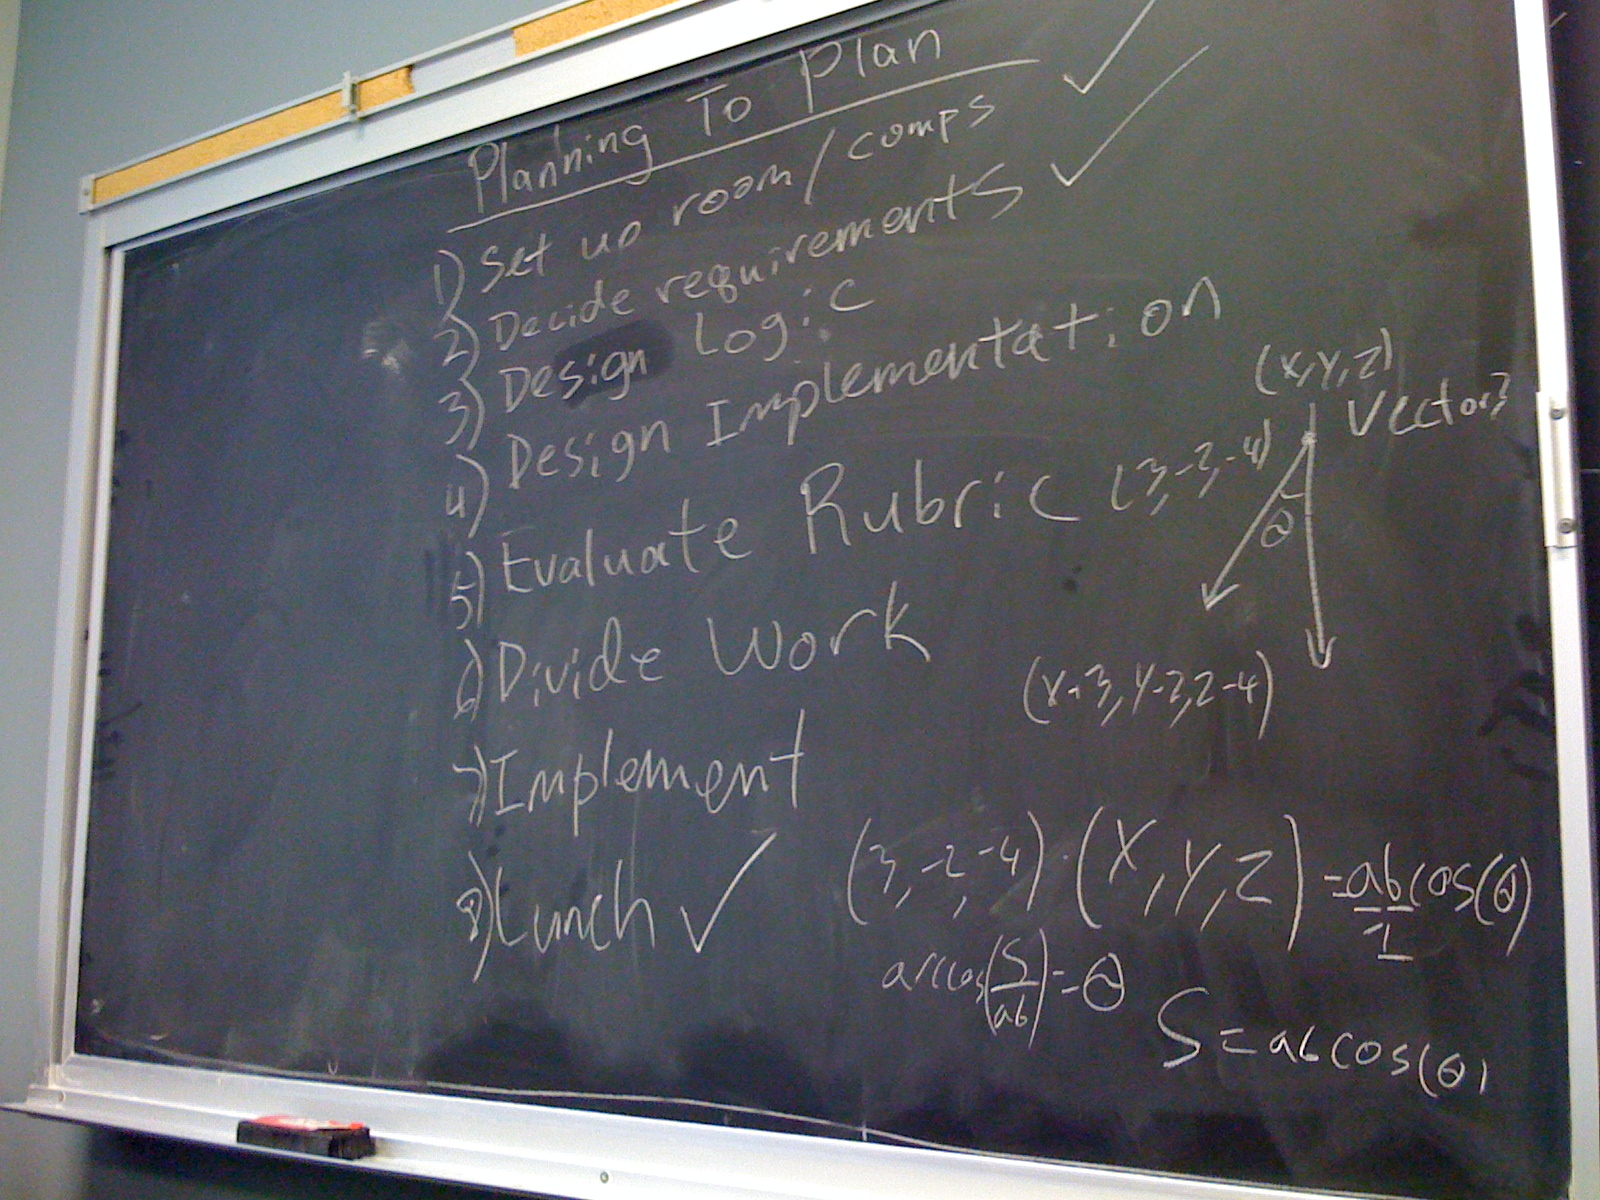 Planning To Plan
1) Set up room/comps ✓
2) Decide requirements ✓
3) Design Logic
4) Design Implementation
5) Evaluate Rubric
6) Divide Work
7) Implement
8) Lunch ✓
(X,Y,Z)
Vector3
(3,-2,-4)
θ
(X+3,Y-2,Z-4)
(3,-2,-4)·(X,Y,Z)=abcos(θ)
arccos(S/ab)=θ
S=abcos(θ)